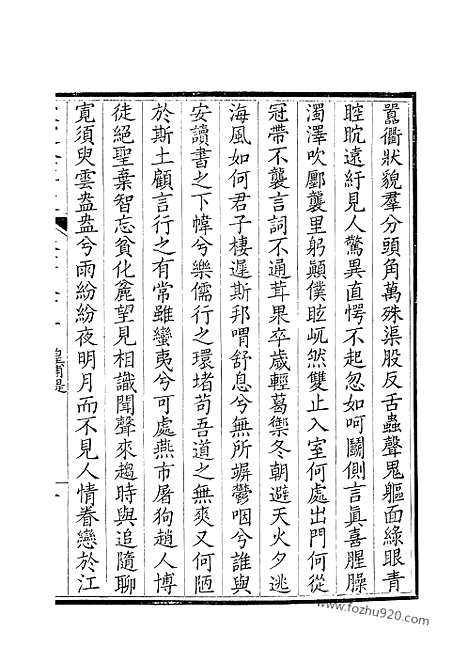 囂衢狀貌羣分頭角萬殊渠股反舌蟲聲鬼軀面綠眼青
睚眈遠紆見人驚異直愕不起忽如呵鬭側言眞喜腥臊
濁澤吹郾襲里躬顛僕眩屼然雙止入室何處出門何從
冠帶不襲言詞不通茸果卒歲輕葛禦冬朝避天火夕逃
海風如何君子棲遲斯邦喟舒息兮無所嶰鬱咽兮誰與
安讀書之下幃兮樂儒行之環堵苟吾道之無爽又何陋
於斯土顧言行之有常雖蠻夷兮可處燕市屠狗趙人博
徒絕聖棄智忘貧化麄望見相識聞聲來趨時與追隨聊
寬須臾雲盎盎兮雨紛紛夜明月而不見人情眷戀於江
皇甫湜
www.fozhu920.com